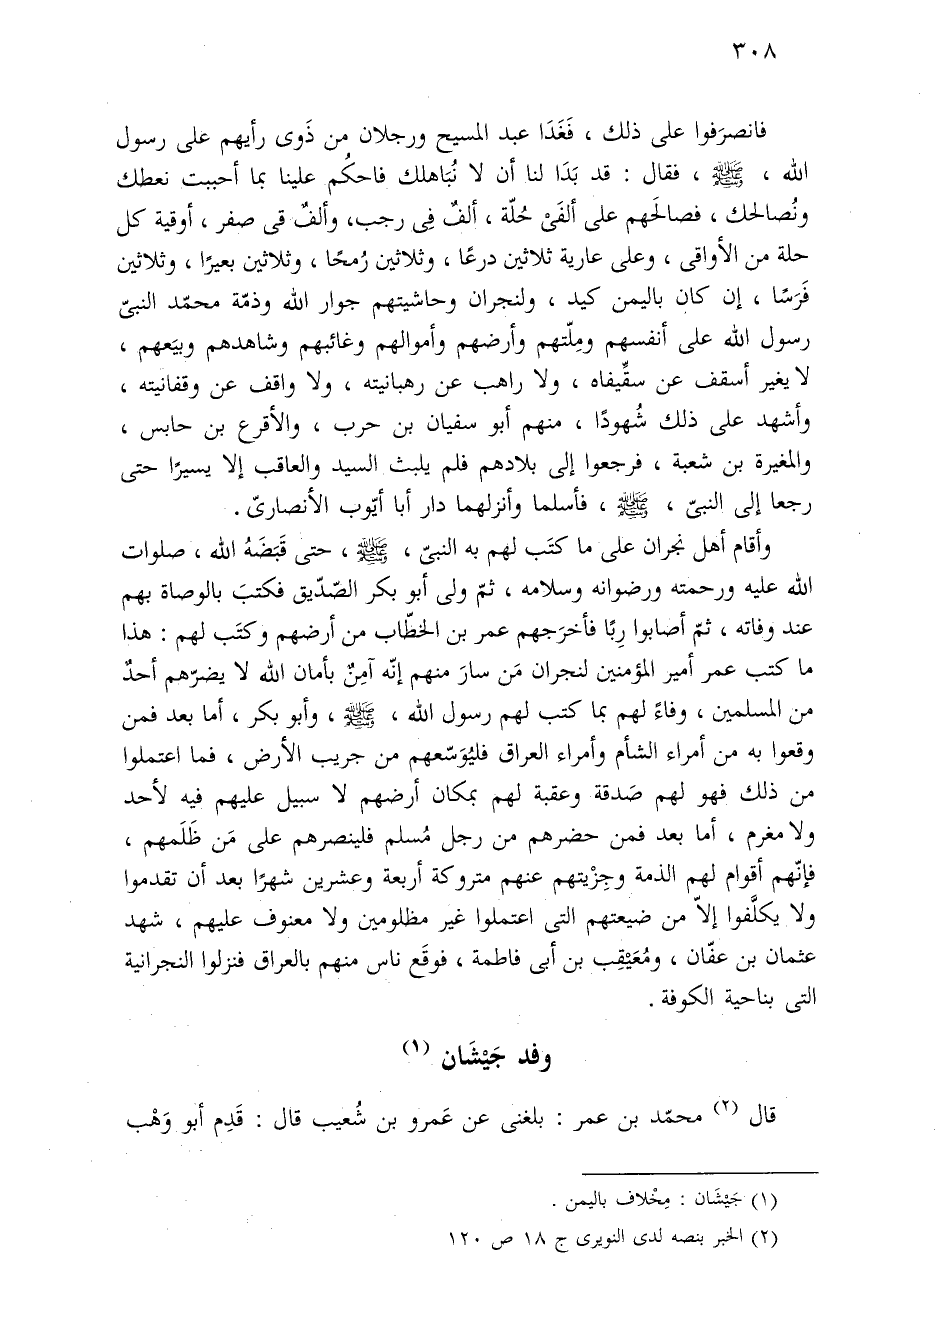 ٣٠٨
فانصرَفوا على ذلك ، فَغَدَا عبد المسيح ورجلان من ذَوى رأيهم على رسول
الله ، ﷺ ، فقال : قد بَدَا لنا أن لا نُبَاهلك فاحكُم علينا بما أحببت نعطك
ونُصالحك ، فصالَحهم على ألفَىْ حُلّة ، ألفٌ فِى رجب، وألفٌ قى صفر ، أوقية كل
حلة من الأواقى ، وعلى عارية ثلاثين درعًا ، وثلاثين رُمحًا ، وثلاثين بعيرًا ، وثلاثين
فَرَسًا ، إن كان باليمن كيد ، ولنجران وحاشيتهم جوار الله وذمّة محمد النبىّ
رسول الله على أنفسهم ومِلّتهم وأرضهم وأموالهم وغائبهم وشاهدهم وبيَعهم ،
لا يغير أسقف عن سقِّيفاه ، ولا راهب عن رهبانيته ، ولا واقف عن وقفانيته ،
وأشهد على ذلك شُهودًا ، منهم أبو سفيان بن حرب ، والأقرع بن حابس ،
والمغيرة بن شعبة ، فرجعوا إلى بلادهم فلم يلبث السيد والعاقب إلا يسيرًا حتى
رجعا إلى النبىّ ، ﷺ ، فأسلما وأنزلهما دار أبا أيّوب الأنصارىّ .
وأقام أهل نجران على ما كتَب لهم به النبىّ ، ﷺ ، حتى قَبَضَهُ الله ، صلوات
الله عليه ورحمته ورضوانه وسلامه ، ثمّ ولى أبو بكر الصّدّيق فكتبَ بالوصاة بهم
عند وفاته ، ثمّ أصابوا رِبًا فأخرَجهم عمر بن الخطّاب من أرضهم وكتَب لهم : هذا
ما كتب عمر أمير المؤمنين لنجران مَن سارَ منهم إنّه آمِنٌ بأمان الله لا يضرّهم أحدٌ
من المسلمين ، وفاءً لهم بما كتب لهم رسول الله ، ﷺ ، وأبو بكر ، أما بعد فمن
وقعوا به من أمراء الشأم وأمراء العراق فليُوَسّعهم من جريب الأرض ، فما اعتملوا
من ذلك فهو لهم صَدقة وعقبة لهم بمكان أرضهم لا سبيل عليهم فيه لأحد
ولا مغرم ، أما بعد فمن حضرهم من رجل مُسلم فلينصرهم على مَن ظَلَمهم ،
فإنّهم أقوام لهم الذمة وجِزْيتهم عنهم متروكة أربعة وعشرين شهرًا بعد أن تقدموا
ولا يكلَّفوا إلاّ من ضيعتهم التى اعتملوا غير مظلومين ولا معنوف عليهم ، شهد
عثمان بن عفّان ، ومُعَيْقِب بن أبى فاطمة ، فوقَع ناس منهم بالعراق فنزلوا النجرانية
التى بناحية الكوفة .
وفد جَيْشَان (١)
قال (٢) محمّد بن عمر : بلغنى عن عَمرو بن شُعيب قال : قَدِم أبو وَهْب
(١) جَيْشَان : مِخْلاف باليمن .
(٢) الخبر بنصه لدى النويرى ج ١٨ ص ١٢٠